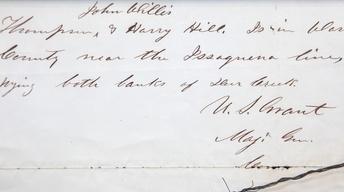 John Willis
Thompson, & Harry Hill. Is in War
County near the Issaquena line,
lying both banks of Deer Creek.
U. S. Grant
Maj. Gen.